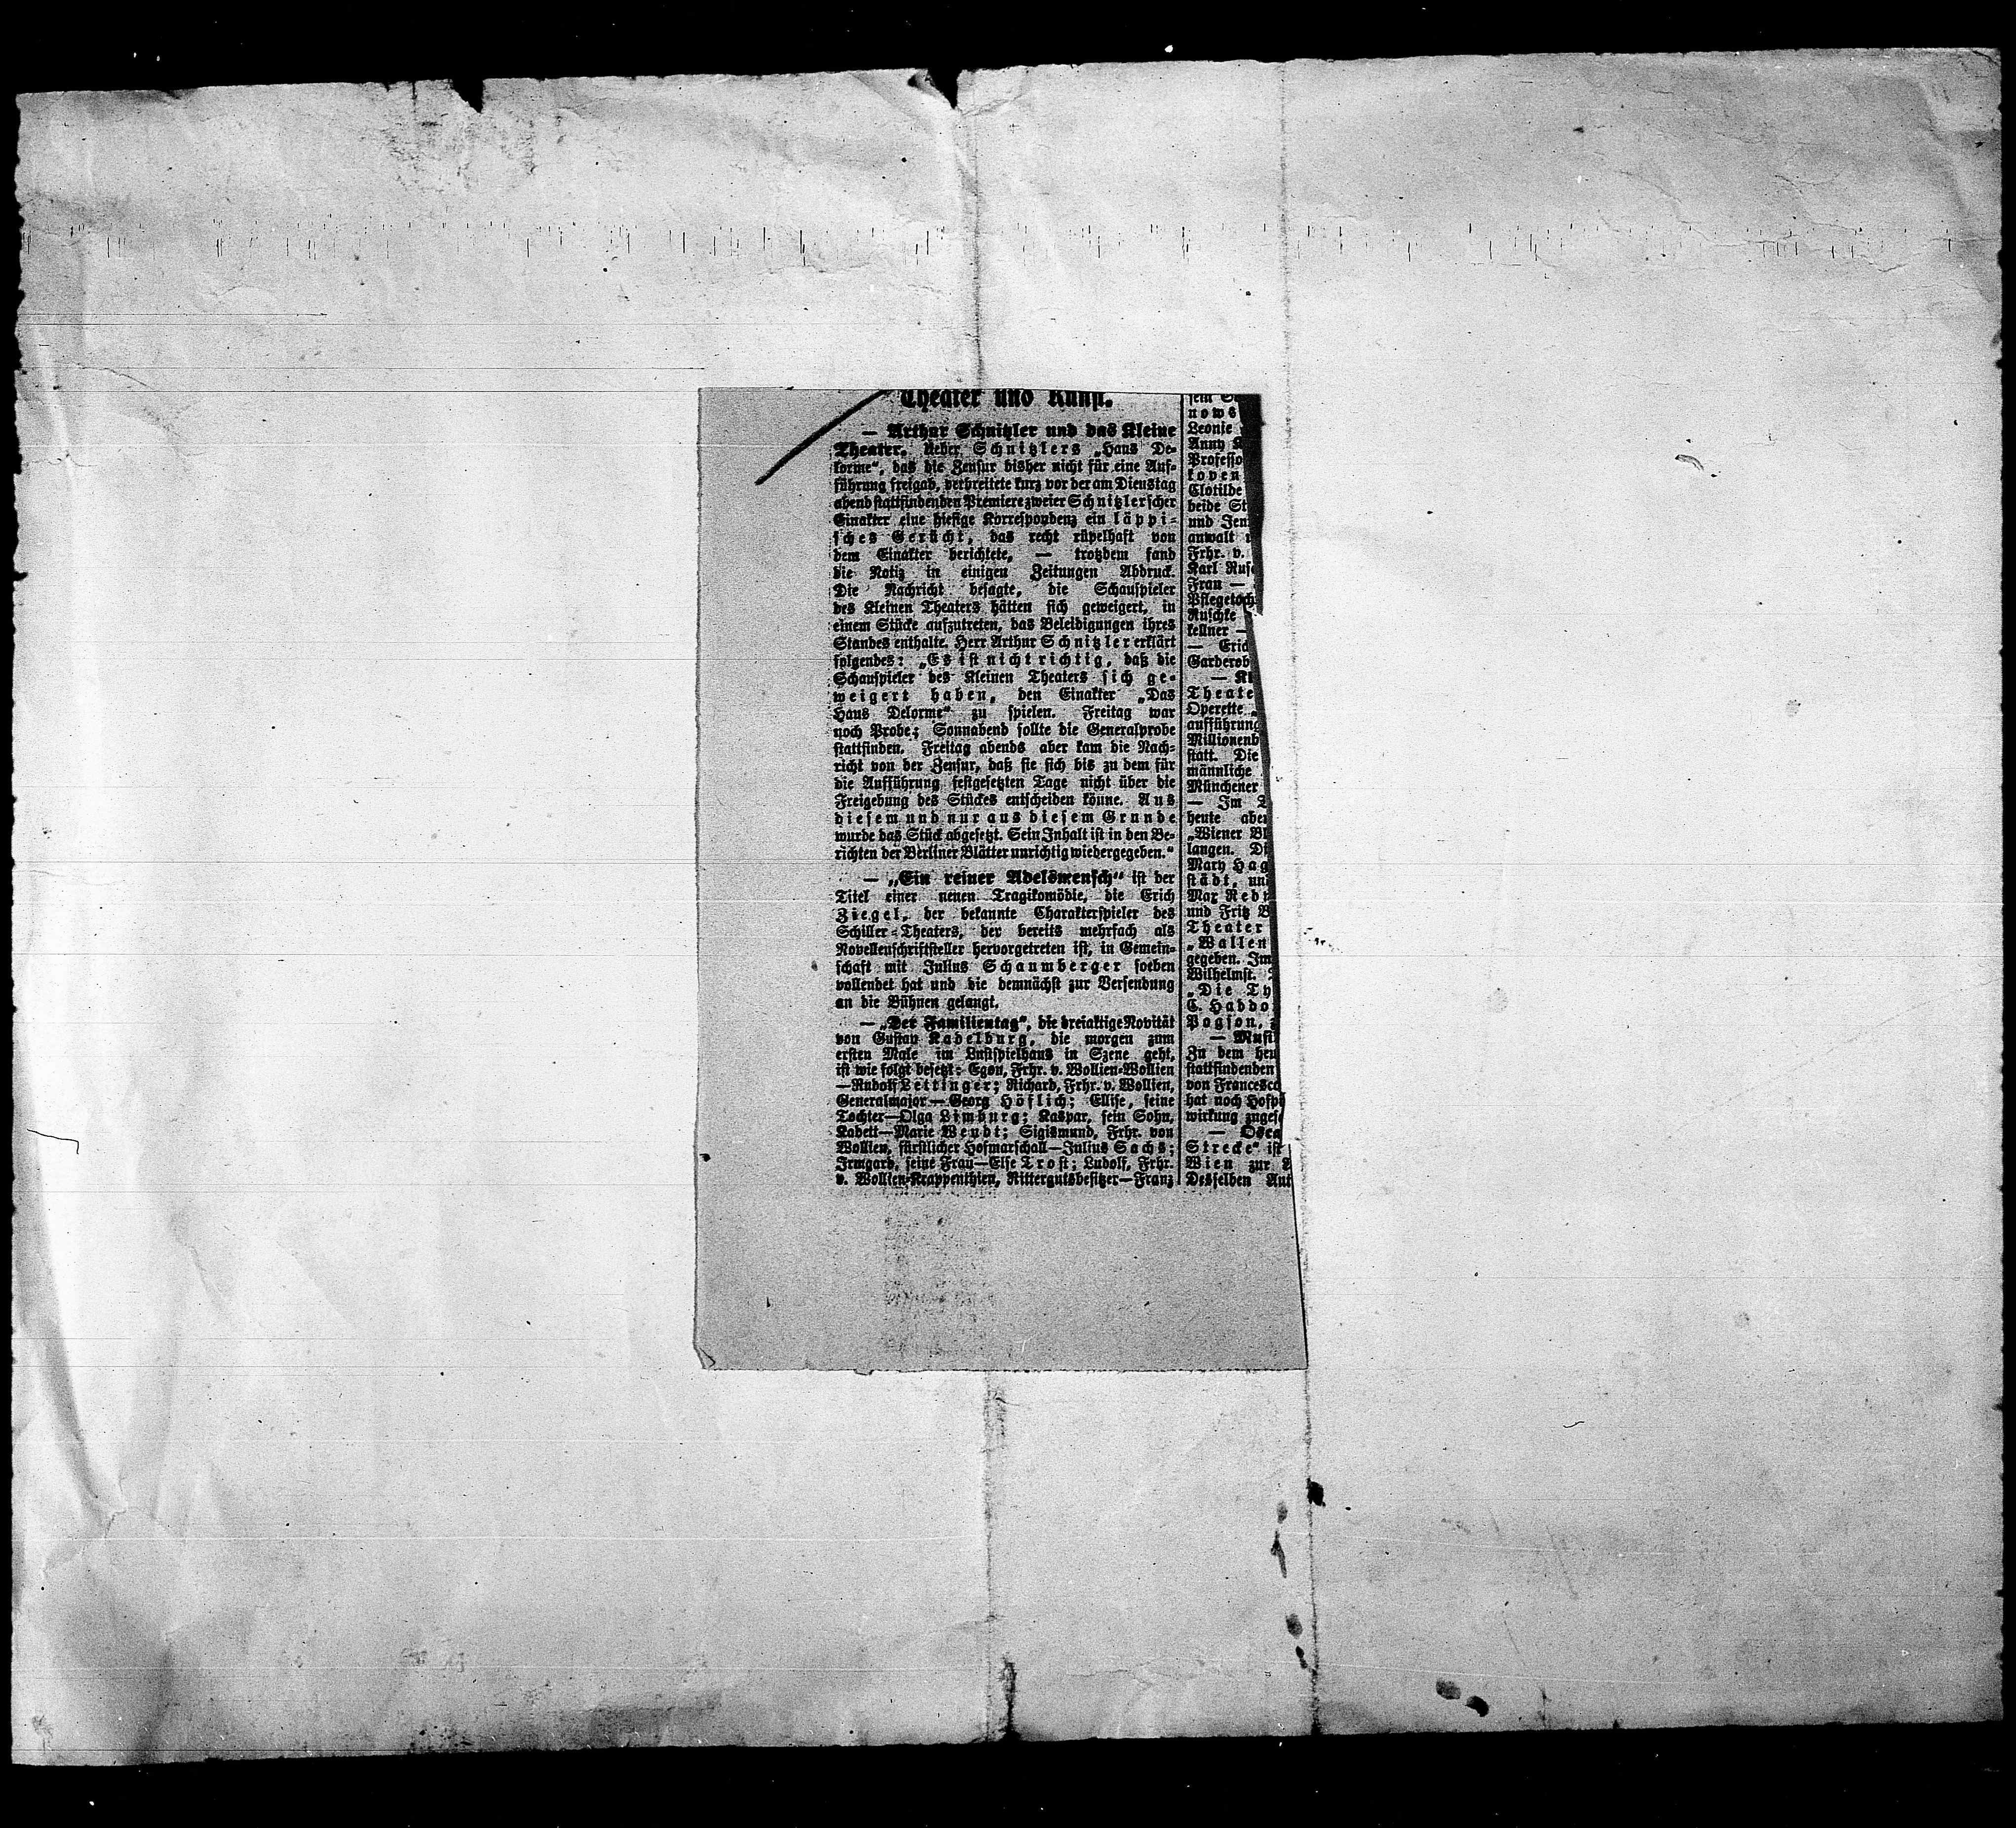 Theater und Kunst.
— Arthur Schnitzler und das Kleine
Theater. Ueber Schnitzlers „Haus De-
lorme“, das die Zensur bisher nicht für eine Auf-
führung freigab, verbreitete kurz vor der am Dienstag
abend stattfindenden Premiere zweier Schnitzlerscher
Einakter eine hiesige Korrespondenz ein läppi-
sches Gerücht, das recht rüpelhaft von
dem Einakter berichtete, — trotzdem fand
die Notiz in einigen Zeitungen Abdruck.
Die Nachricht besagte, die Schauspieler
des Kleinen Theaters hätten sich geweigert, in
einem Stücke aufzutreten, das Beleidigungen ihres
Standes enthalte. Herr Arthur Schnitzler erklärt
folgendes: „Es ist nicht richtig, daß die
Schauspieler des Kleinen Theaters sich ge-
weigert haben, den Einakter „Das
Haus Delorme“ zu spielen. Freitag war
noch Probe; Sonnabend sollte die Generalprobe
stattfinden. Freitag abends aber kam die Nach-
richt von der Zensur, daß sie sich bis zu dem für
die Aufführung festgesetzten Tage nicht über die
Freigebung des Stückes entscheiden könne. Aus
diesem und nur aus diesem Grunde
wurde das Stück abgesetzt. Sein Inhalt ist in den Be-
richten der Berliner Blätter unrichtig wiedergegeben.“
— „Ein reiner Adelsmensch“ ist der
Titel einer neuen Tragikomödie, die Erich
Ziegel, der bekannte Charakterspieler des
Schiller-Theaters, der bereits mehrfach als
Novellenschriftsteller hervorgetreten ist, in Gemein-
schaft mit Julius Schaumberger soeben
vollendet hat und die demnächst zur Versendung
an die Bühnen gelangt.
— „Der Familientag“, die dreiaktige Novität
von Gustav Kadelburg, die morgen zum
ersten Male im Lustspielhaus in Szene geht,
ist wie folgt besetzt: Egon, Frhr. v. Wollien-Wollien
—Rudolf Lettinger; Richard, Frhr. v. Wollien,
Generalmajor—Georg Höflich; Ellise, seine
Tochter—Olga Limburg; Kaspar, sein Sohn,
Kadett—Marie Wendt; Sigismund, Frhr. von
Wollien, fürstlicher Hofmarschall—Julius Sachs;
Irmgard, seine Frau—Else Trost; Ludolf, Frhr.
v. Wollien-Krappenthien, Rittergutsbesitzer—Franz
sein
nows
Leonie
Anny
Professo
koven
Clotilde
beide St
und Jen
anwalt
Frhr. v.
Karl Rus
Frau —
Pflegetoch
Ruschke
kellner —
— Eric
Garderob
— Kl
Theate
Operette „
aufführung
Millionenb
statt. Die
männliche
Münchener
— Im
heute abe
„Wiener Bl
langen. Di
Mary Hag
städt, un
Max Red
und Fritz B
Theater
„Wallen
gegeben. Im
Wilhelmst.
„Die Ty
C. Haddo
Pogson,
— Musi
Zu dem heu
stattfindenden
von Francesco
hat noch Hof
wirkung zuges
— Osca
Strecke“ ist
Wien zur
Desselben Aut